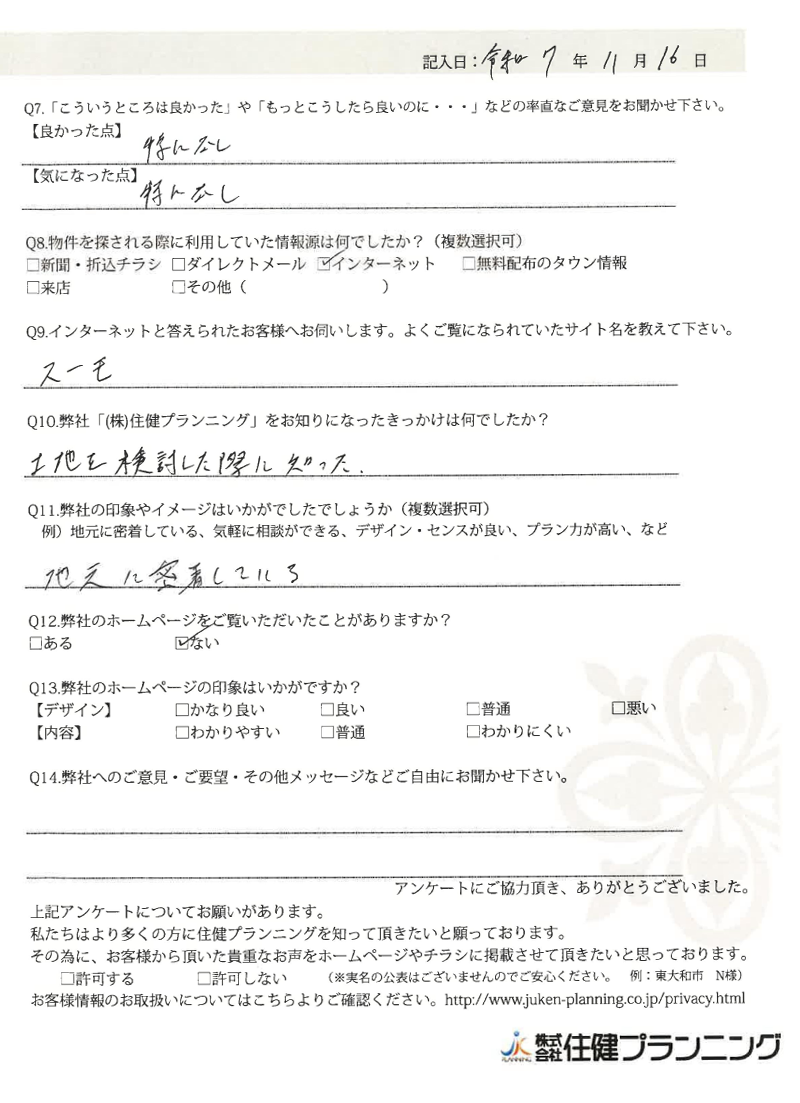 記入日：令和 7 年 11 月 16 日
Q7.「こういうところは良かった」や「もっとこうしたら良いのに・・・」などの率直なご意見をお聞かせ下さい。
【良かった点】
特になし
【気になった点】
特になし
Q8.物件を探される際に利用していた情報源は何でしたか？（複数選択可）
□新聞・折込チラシ □ダイレクトメール ☑インターネット □無料配布のタウン情報
□来店 □その他（ ）
Q9.インターネットと答えられたお客様へお伺いします。よくご覧になられていたサイト名を教えて下さい。
スーモ
Q10.弊社「(株)住健プランニング」をお知りになったきっかけは何でしたか？
土地を検討した際に知った.
Q11.弊社の印象やイメージはいかがでしたでしょうか（複数選択可）
例）地元に密着している、気軽に相談ができる、デザイン・センスが良い、プラン力が高い、など
地元に密着している
Q12.弊社のホームページをご覧いただいたことがありますか？
□ある ☑ない
Q13.弊社のホームページの印象はいかがですか？
【デザイン】 □かなり良い □良い □普通 □悪い
【内容】 □わかりやすい □普通 □わかりにくい
Q14.弊社へのご意見・ご要望・その他メッセージなどご自由にお聞かせ下さい。
アンケートにご協力頂き、ありがとうございました。
上記アンケートについてお願いがあります。
私たちはより多くの方に住健プランニングを知って頂きたいと願っております。
その為に、お客様から頂いた貴重なお声をホームページやチラシに掲載させて頂きたいと思っております。
□許可する □許可しない （※実名の公表はございませんのでご安心ください。 例：東大和市 N様）
お客様情報のお取扱いについてはこちらよりご確認ください。http://www.juken-planning.co.jp/privacy.html
JK PLANNING 株式会社住健プランニング